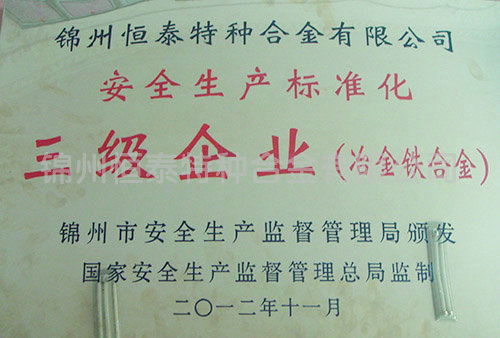 锦州恒泰特种合金有限公司
安全生产标准化
三级企业(冶金铁合金)
锦州市安全生产监督管理局颁发
国家安全生产监督管理总局监制
二〇一二年十一月